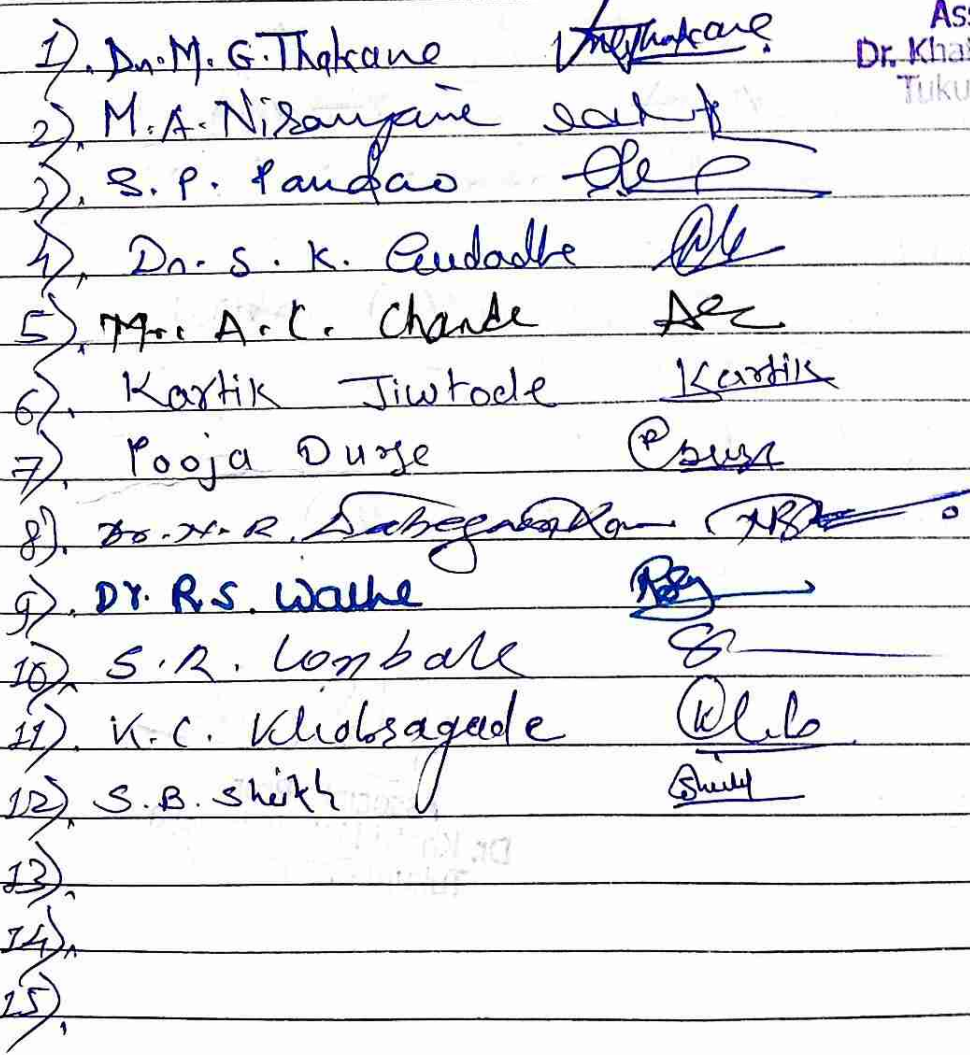 Ass
Dr. Khal
Tuku
1). Dr. M. G. Thakane MGThakane
2). M. A. Niranjane
3). S. P. Pandao
4). Dr. S. K. Gudadhe
5). Mr. A. C. Chande
6). Kartik Jiwtode Kartik
7). Pooja Durge
8). Dr. N. R.
9). Dr. R.S. Wathe
10). S. R. Lonbale
11). K. C. Khobragade
12). S. B. Sheikh Sheikh
13).
14).
15).